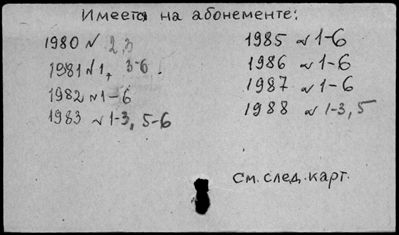 Имеется на абонементе:
1980 № 2,3
1981 №1, 3-6.
1982 №1-6
1983 № 1-3, 5-6
1985 № 1-6
1986 № 1-6
1987 № 1-6
1988 № 1-3, 5
См. след. карт.